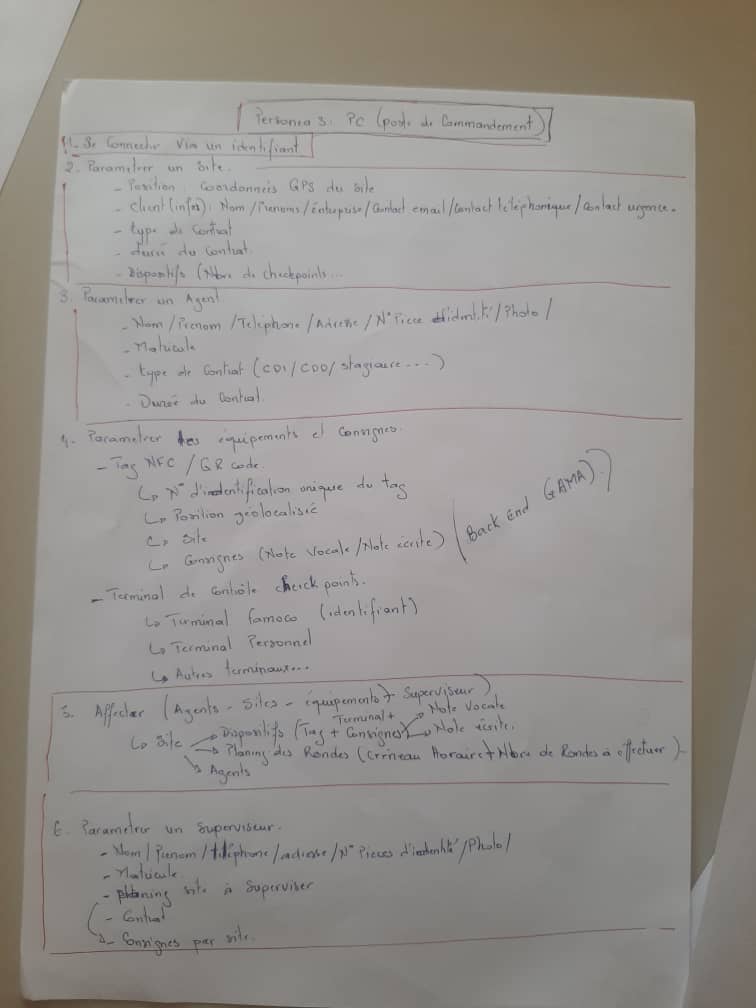 Persona 3: PC (poste de Commandement)
1. Se Connecter Via un identifiant
2. Parametrer un Site.
- Position : Coordonnées GPS du site
- Client (infos): Nom / Prenoms / Entreprise / Contact email / Contact téléphonique / Contact urgence.
- type de Contrat
- durée du Contrat.
- Dispositifs (Nbre de checkpoints...
3. Parametrer un Agent.
- Nom / Prenom / Téléphone / Adresse / N° Piece d'identité / Photo /
- Matricule
- type de Contrat (CDI / CDD / stagiaire...)
- Durée du Contrat.
4. Parametrer les équipements et Consignes.
- Tag NFC / QR code.
↳ N° d'identification unique du tag
↳ Position géolocalisée
↳ Site
↳ Consignes (Note Vocale / Note écrite) (Back End GAMA))
- Terminal de Contrôle check points.
↳ Terminal famoco (identifiant)
↳ Terminal Personnel
↳ Autres terminaux...
5. Affecter (Agents - Sites - équipements + Superviseur)
↳ Site → Dispositifs (Tag + Terminal + Consignes) → Note Vocale → Note écrite.
→ Planing des Rondes (Créneau Horaire + Nbre de Rondes à effectuer)
→ Agents
6. Parametrer un Superviseur.
- Nom / Prenom / téléphone / adresse / N° Pieces d'identité / Photo /
- Matricule
- planing site à Superviser
- Contrat
- Consignes par site.